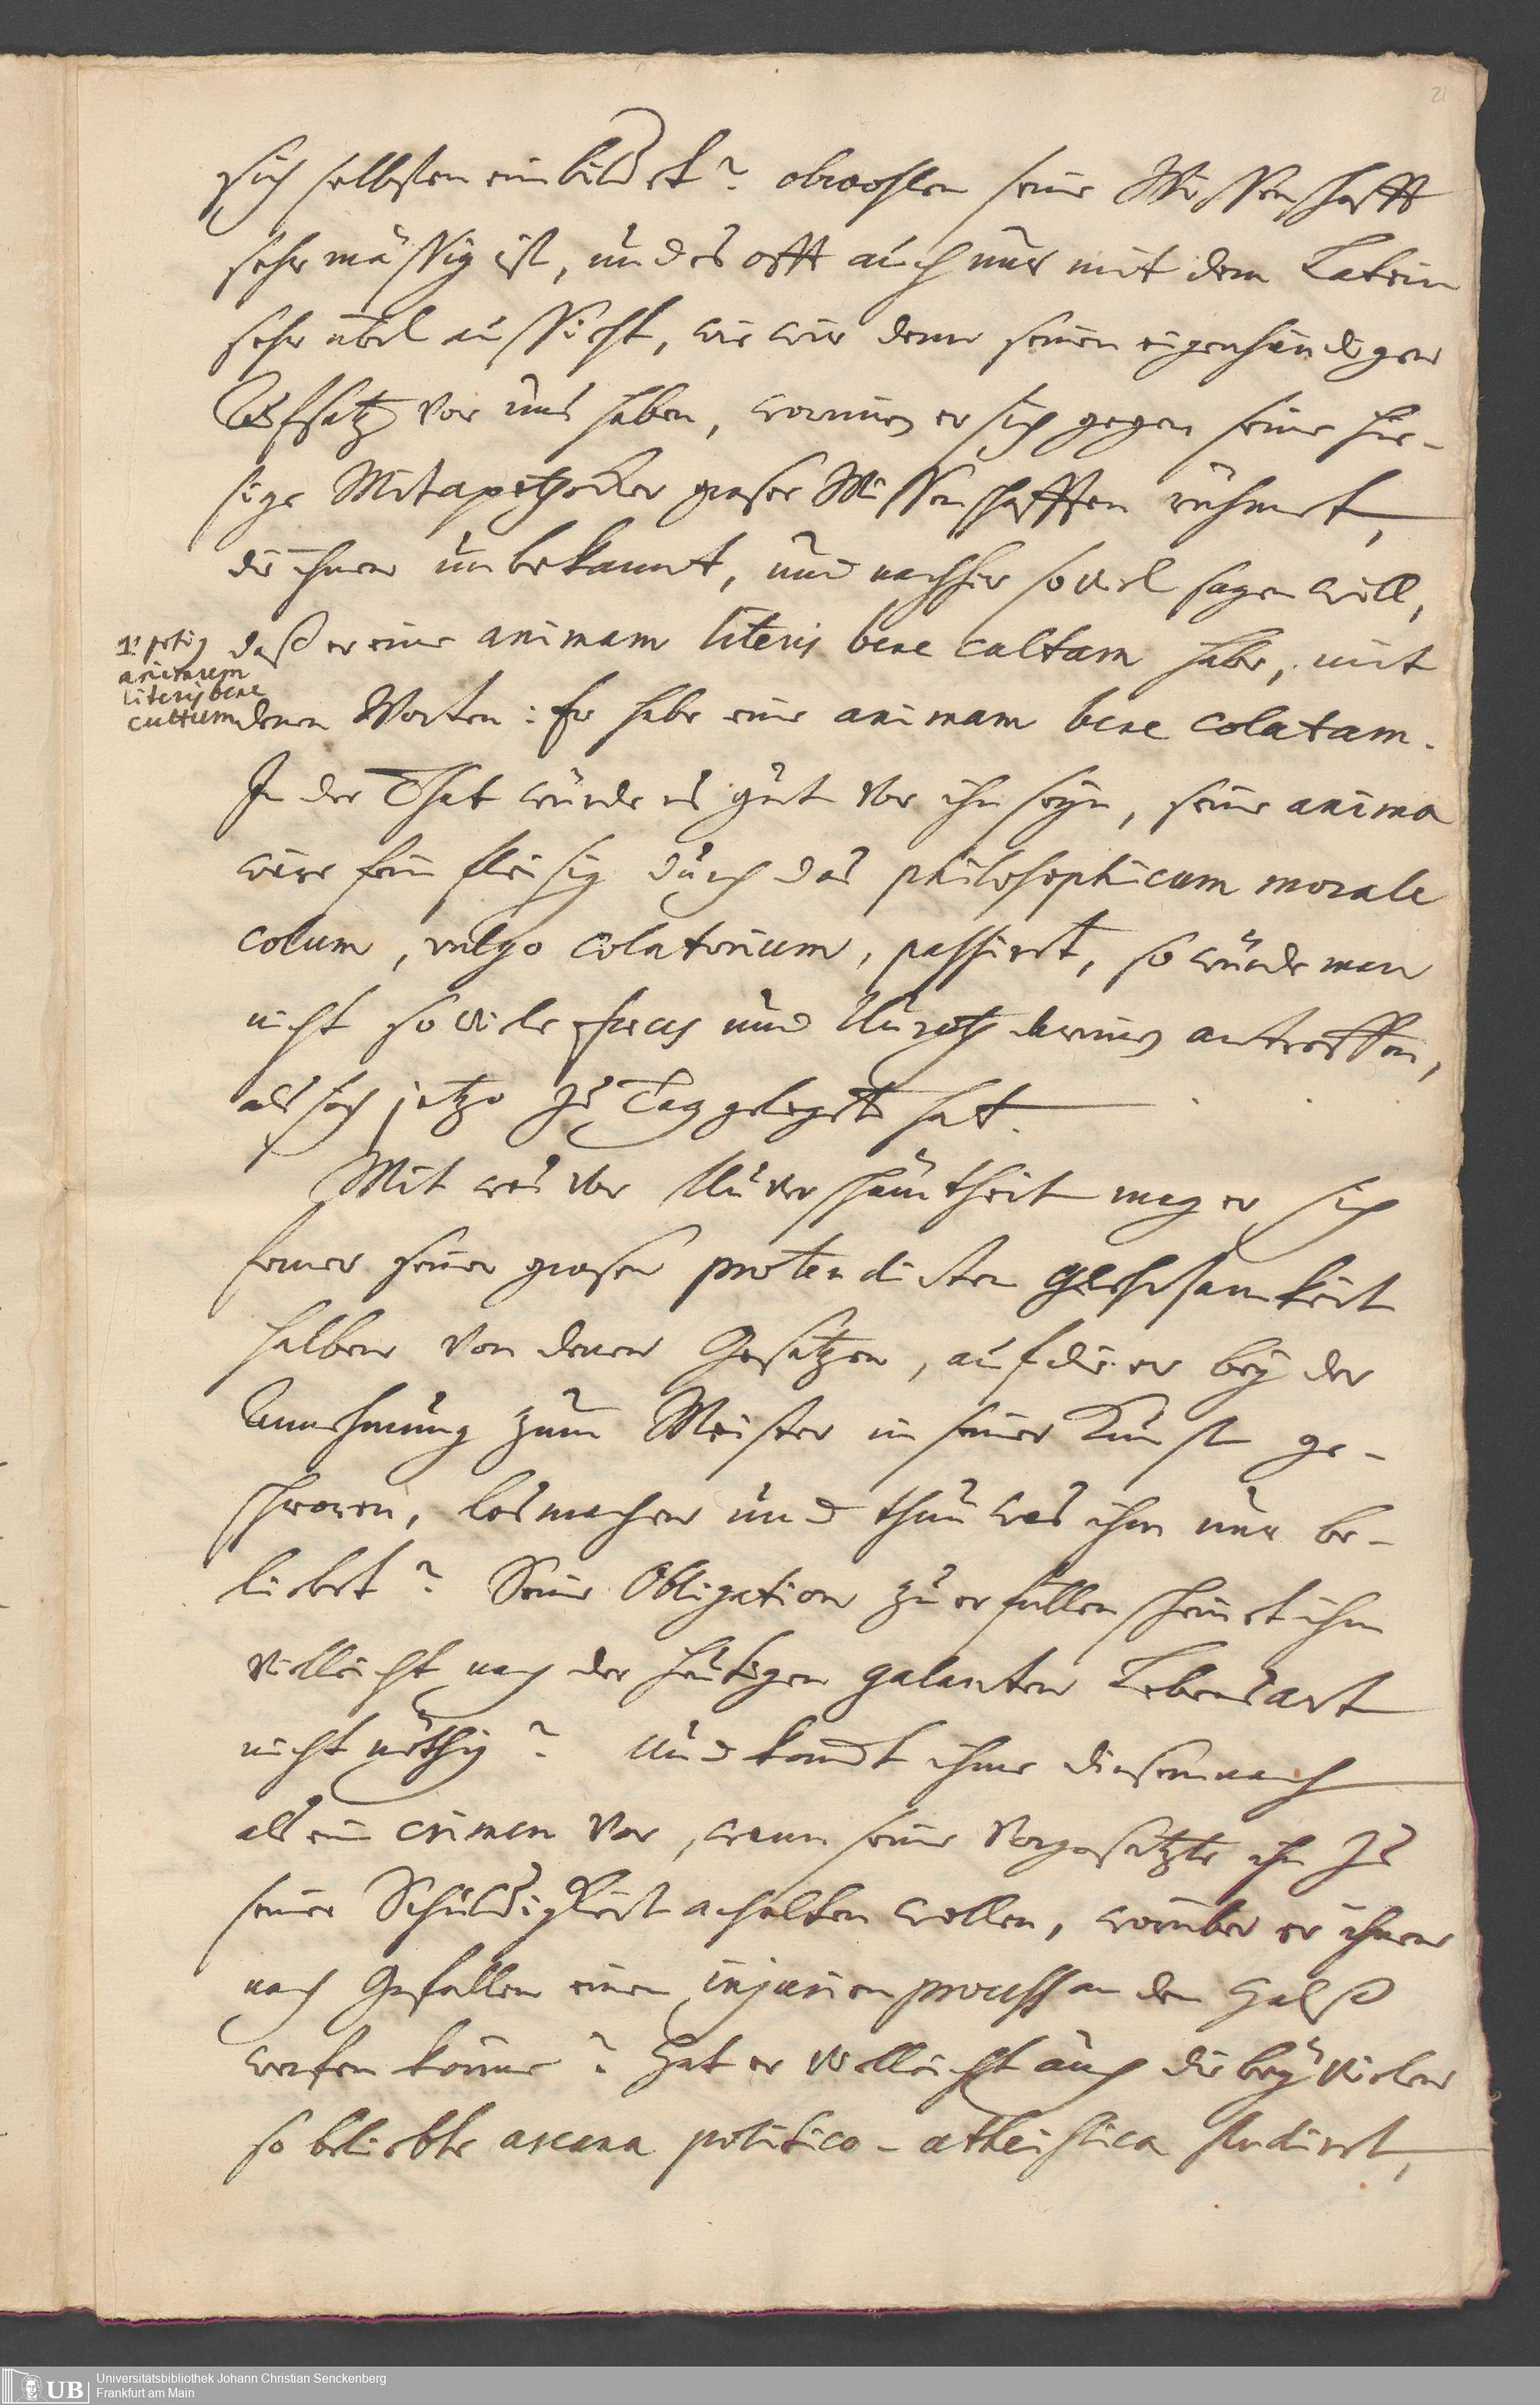 21
sich selbsten einbildet? obwohlen seine Wissenschafft
sehr mässig ist, und es offt auch nur mit dem Latein
sehr übel aussieht, wie wir denn seinen eigenhändigen
Aufsatz vor uns haben, worinnen er sich gegen seine hie-
sige Mitapothecker groser Wissenschafften rühmet,
die ihnen unbekannt, und nachher soviel sagen will,
daß er eine animam literis bene cultam habe, mit
animum
literis bene
cultum
denen Worten: Er habe eine animam bene colatam.
In der That würde es gut vor ihn seyn, seine anima
wäre fein fleisig durch das philosophicum morale
colum, vulgo colatorium, passirt, so würde man
nicht so viele faeces und Unrath darinnen antreffen,
als sich jetzo zu Tag gelegt hat.
Mit was vor Unverschämtheit mag er sich
ferner seiner grosen protendirten Gelehrsamkeit
halben von denen Gesätzen, auf die er bey der
Annehmung zum Meister in seiner Kunst ge-
schworen, losmachen und thun was ihm nur be-
liebet? Seine Obligation zu erfüllen scheinet ihm
villeicht nach der heutigen galanten Lebensart
nicht nöthig? Und komt ihme diesemnach
als ein crimen vor, wann seine Vorgesätzte ihn zu
seiner Schuldigkeit anhalten wollen, worüber er ihnen
nach Gefallen einen injurien process an den Halß
werfen könne? Hat er villeicht auch die bey vielen
so beliebte arcana politico-atheistica studiret,
UB
Universitätsbibliothek Johann Christian Senckenberg
Frankfurt am Main